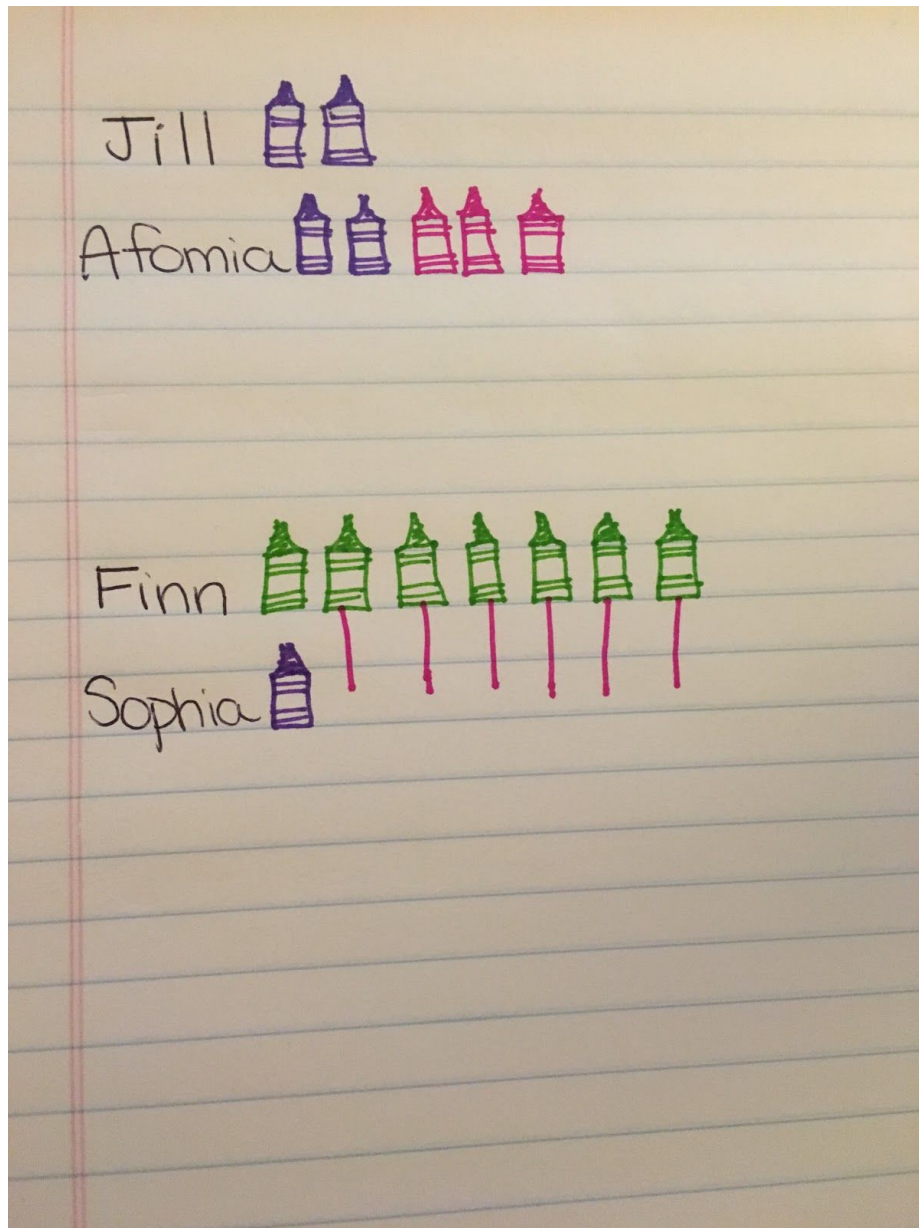 Jill
Afomia
Finn
Sophia